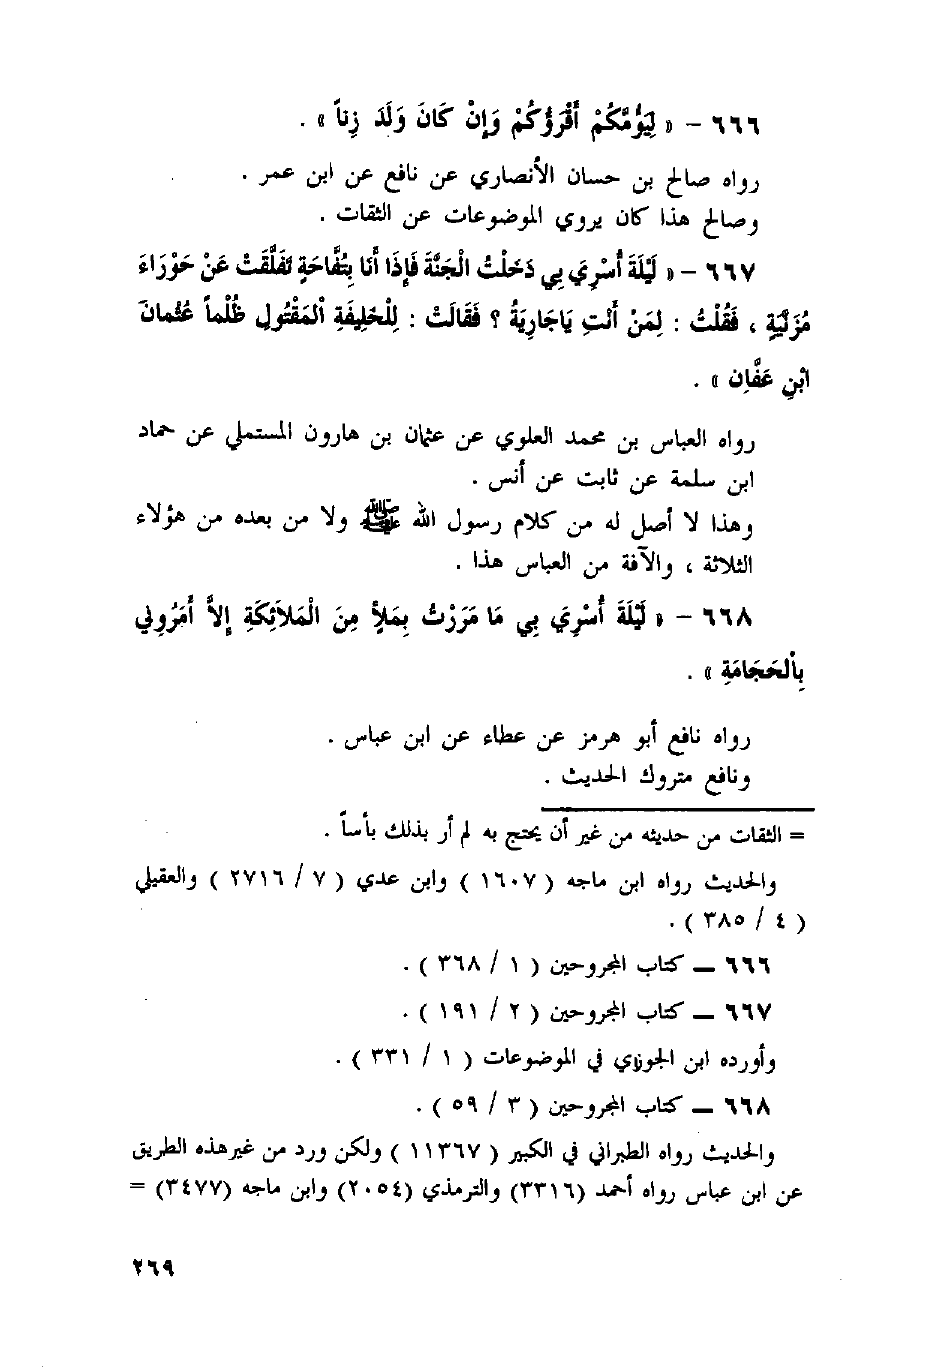 ٦٦٦ – « لِيَؤُمَّكُمْ أَقْرَؤُكُمْ وَإِنْ كَانَ وَلَدَ زِناً » .
رواه صالح بن حسان الأنصاري عن نافع عن ابن عمر .
وصالح هذا كان يروي الموضوعات عن الثقات .
٦٦٧ – « لَيْلَةَ أُسْرِيَ بِي دَخَلْتُ الْجَنَّةَ فَإِذَا أَنَا بِتُفَّاحَةٍ تَفَلَّقَتْ عَنْ حَوْرَاءَ
مُزَيَّنَةٍ ، فَقُلْتُ : لِمَنْ أَنْتِ يَاجَارِيَةُ ؟ فَقَالَتْ : لِلْخَلِيفَةِ الْمَقْتُولِ ظُلْماً عُثْمانَ
ابْنِ عَفَّان » .
رواه العباس بن محمد العلوي عن عثمان بن هارون المستملي عن حماد
ابن سلمة عن ثابت عن أنس .
وهذا لا أصل له من كلام رسول الله ﷺ ولا من بعده من هؤلاء
الثلاثة ، والآفة من العباس هذا .
٦٦٨ – « لَيْلَةَ أُسْرِيَ بِي مَا مَرَرْتُ بِمَلأٍ مِنَ الْمَلاَئِكَةِ إِلاَّ أَمَرُونِي
بِالْحَجَامَةِ » .
رواه نافع أبو هرمز عن عطاء عن ابن عباس .
ونافع متروك الحديث .
= الثقات من حديثه من غير أن يحتج به لم أر بذلك بأساً .
والحديث رواه ابن ماجه ( ١٦٠٧ ) وابن عدي ( ٧ / ٢٧١٦ ) والعقيلي
( ٤ / ٣٨٥ ) .
٦٦٦ — كتاب المجروحين ( ١ / ٣٦٨ ) .
٦٦٧ — كتاب المجروحين ( ٢ / ١٩١ ) .
وأورده ابن الجوزي في الموضوعات ( ١ / ٣٣١ ) .
٦٦٨ — كتاب المجروحين ( ٣ / ٥٩ ) .
والحديث رواه الطبراني في الكبير ( ١١٣٦٧ ) ولكن ورد من غيرهذه الطريق
عن ابن عباس رواه أحمد (٣٣١٦) والترمذي (٢٠٥٤) وابن ماجه (٣٤٧٧) =
٢٦٩